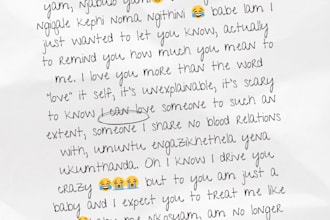 yam, ngabus yami
ngiqale kephi noma ngithini 😂 babe lam I
just wanted to let you know, actually
to remind you how much you mean to
me. I love you more than the word
"love" it self, it's unexplainable, it's scary
to know I can love someone to such an
extent, someone I share no blood relations
with, umuntu engazikhethela yena
ukumthanda. Oh I know I drive you
crazy 😭😭😭 but to you am just a
baby and I expect you to treat me like
Nkosyam, am no longer